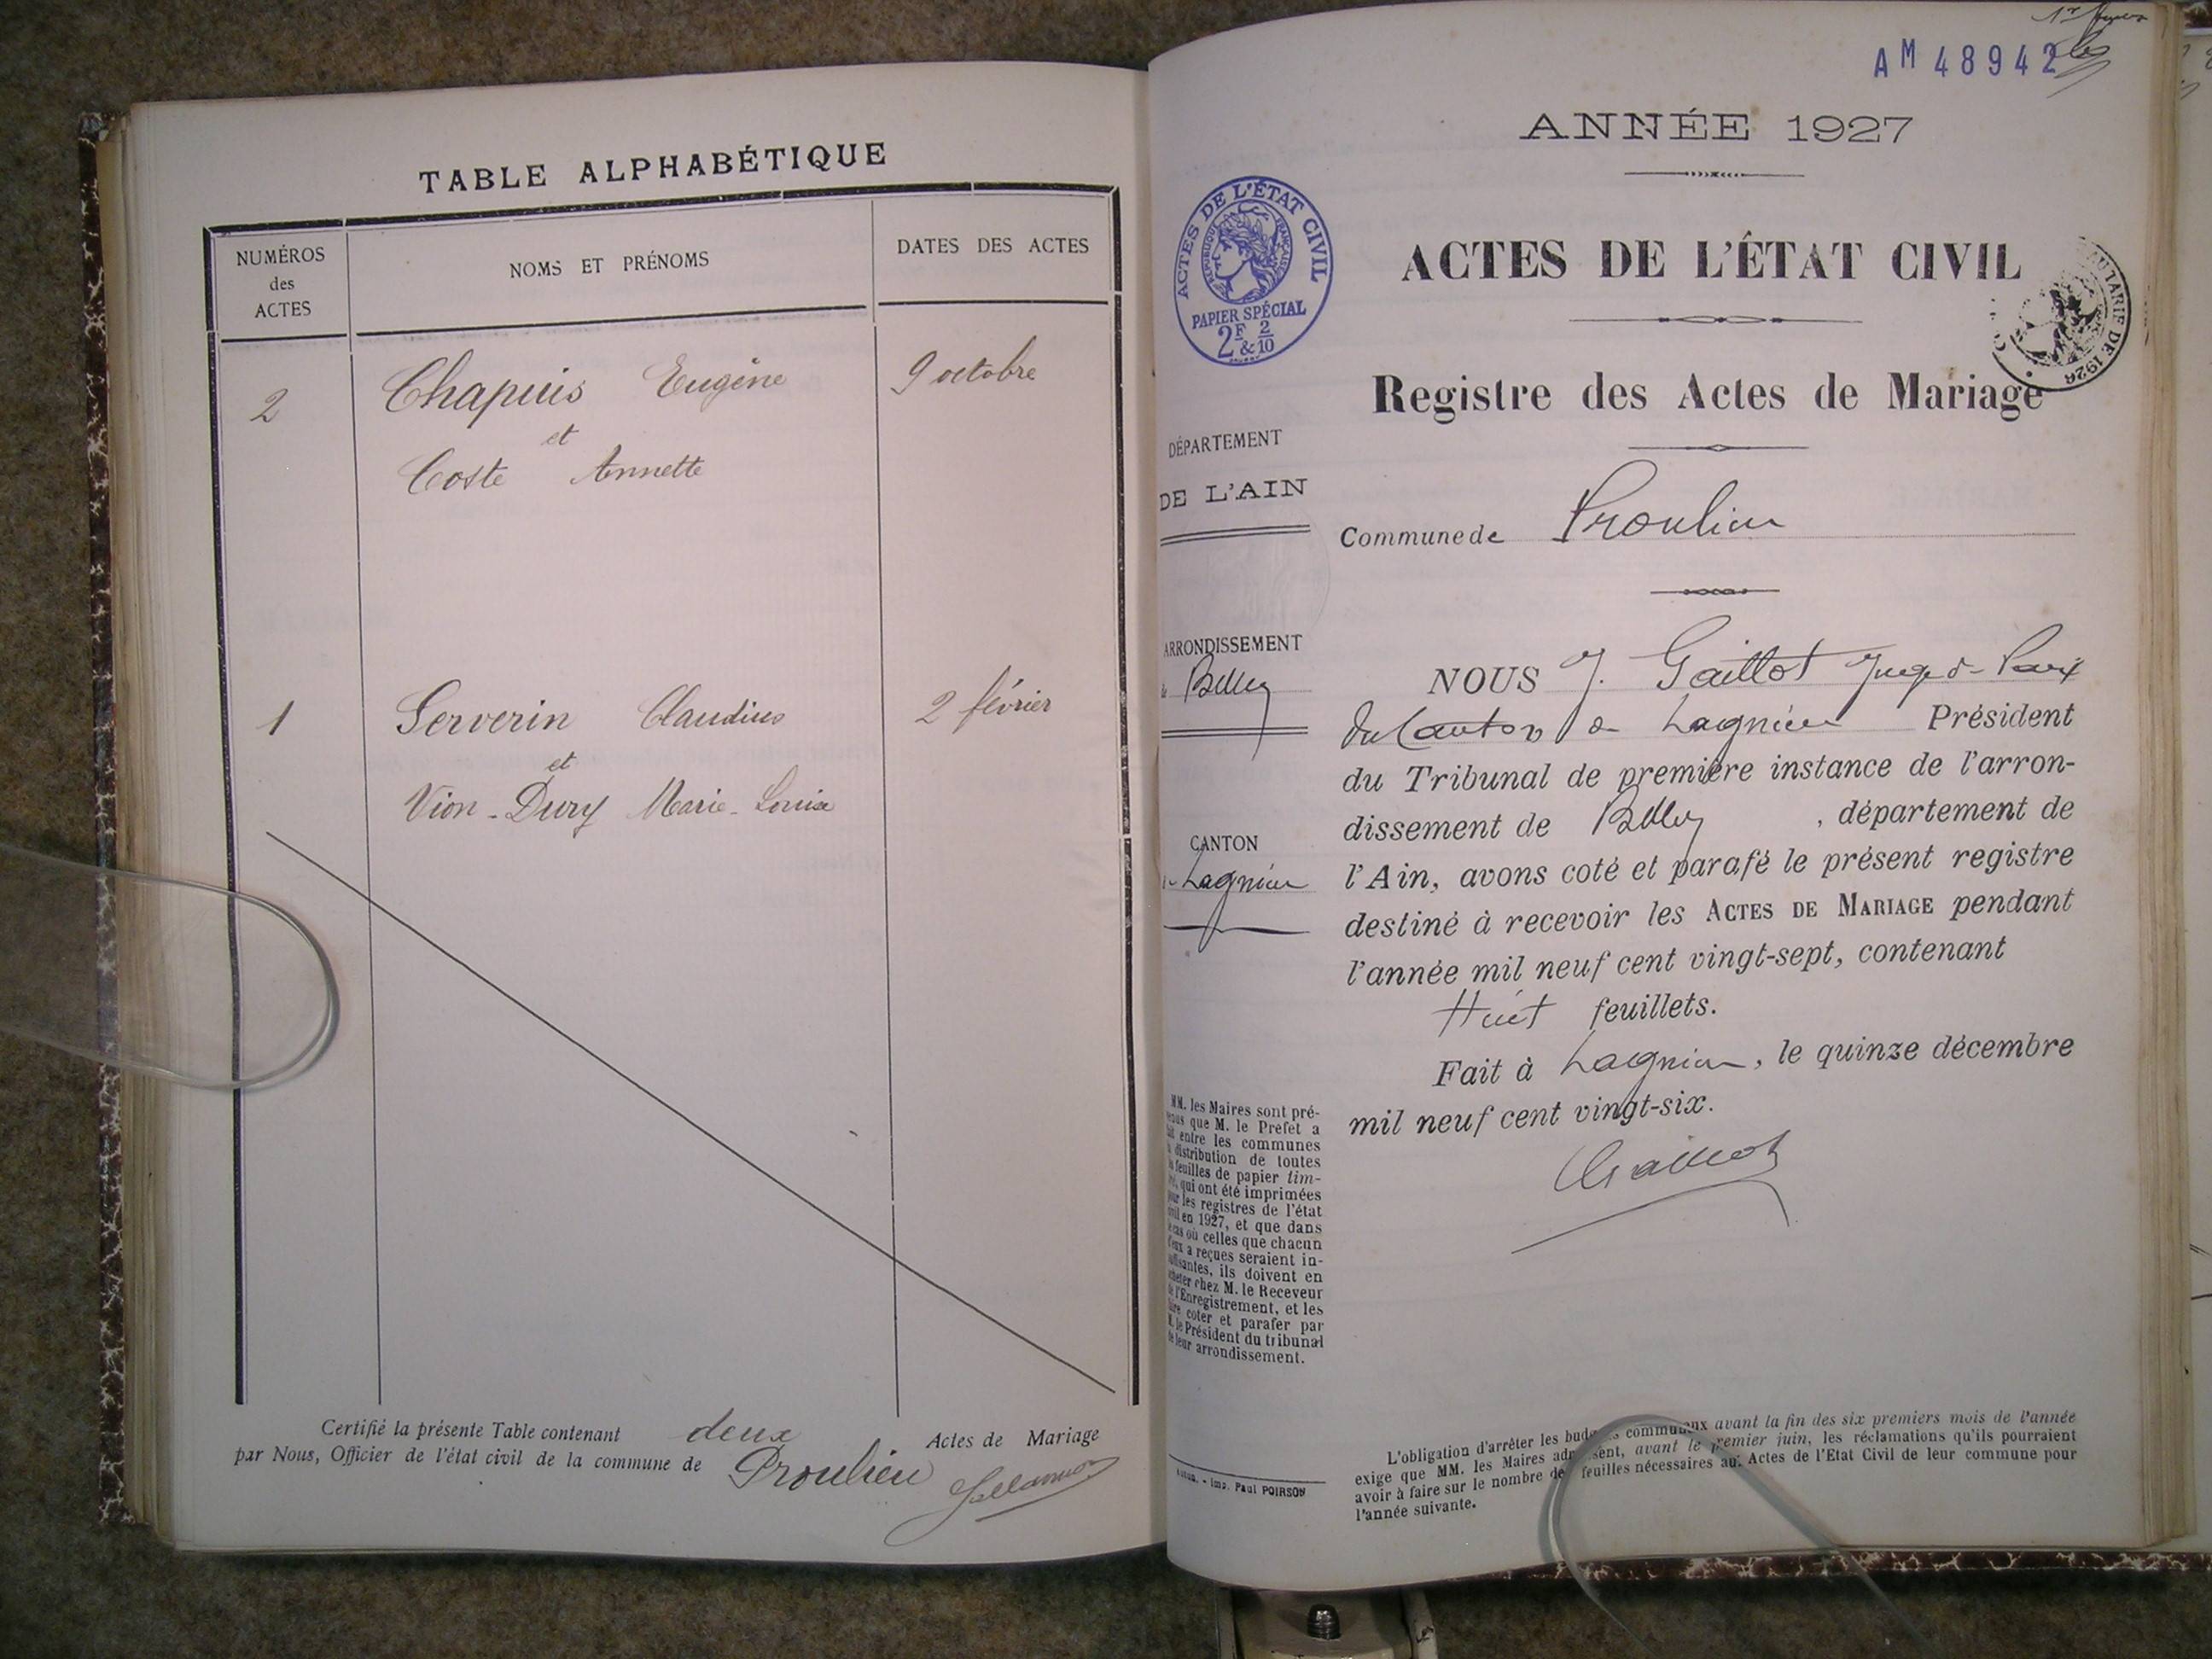 TABLE ALPHABÉTIQUE
NUMÉROS
des
ACTES
NOMS ET PRÉNOMS
DATES DES ACTES
2
Chapuis Eugène
9 octobre
et
Coste Annette
1
Serverin Claudius
2 février
et
Vion-Dury Marie-Louise
Certifié la présente Table contenant deux Actes de Mariage
par Nous, Officier de l'état civil de la commune de Proulieu
AM 48942
ANNÉE 1927
ACTES DE L'ÉTAT CIVIL
RÉPUBLIQUE FRANÇAISE
PAPIER SPÉCIAL
2F & 2/10
ACTES DE L'ÉTAT CIVIL
AU TARIF DE 1926
Registre des Actes de Mariage
DÉPARTEMENT
DE L'AIN
Commune de Proulieu
ARRONDISSEMENT
de Belley
CANTON
de Lagnieu
NOUS J. Gaillot Juge de Paix
du Canton de Lagnieu Président
du Tribunal de première instance de l'arron-
dissement de Belley, département de
l'Ain, avons coté et parafé le présent registre
destiné à recevoir les ACTES DE MARIAGE pendant
l'année mil neuf cent vingt-sept, contenant
Huit feuillets.
Fait à Lagnieu, le quinze décembre
mil neuf cent vingt-six.
Gaillot
MM. les Maires sont pré-
venus que M. le Prefet a
fait entre les communes
la distribution de toutes
les feuilles de papier tim-
bré, qui ont été imprimées
pour les registres de l'état
civil en 1927, et que dans
le cas où celles que chacun
d'eux a reçues seraient in-
suffisantes, ils doivent en
acheter chez M. le Receveur
de l'Enregistrement, et les
faire coter et parafer par
M. le Président du tribunal
de leur arrondissement.
Imp. Paul POIRSON
L'obligation d'arrêter les budgets communaux avant la fin des six premiers mois de l'année
exige que MM. les Maires adressent, avant le premier juin, les réclamations qu'ils pourraient
avoir à faire sur le nombre de feuilles nécessaires aux Actes de l'Etat Civil de leur commune pour
l'année suivante.